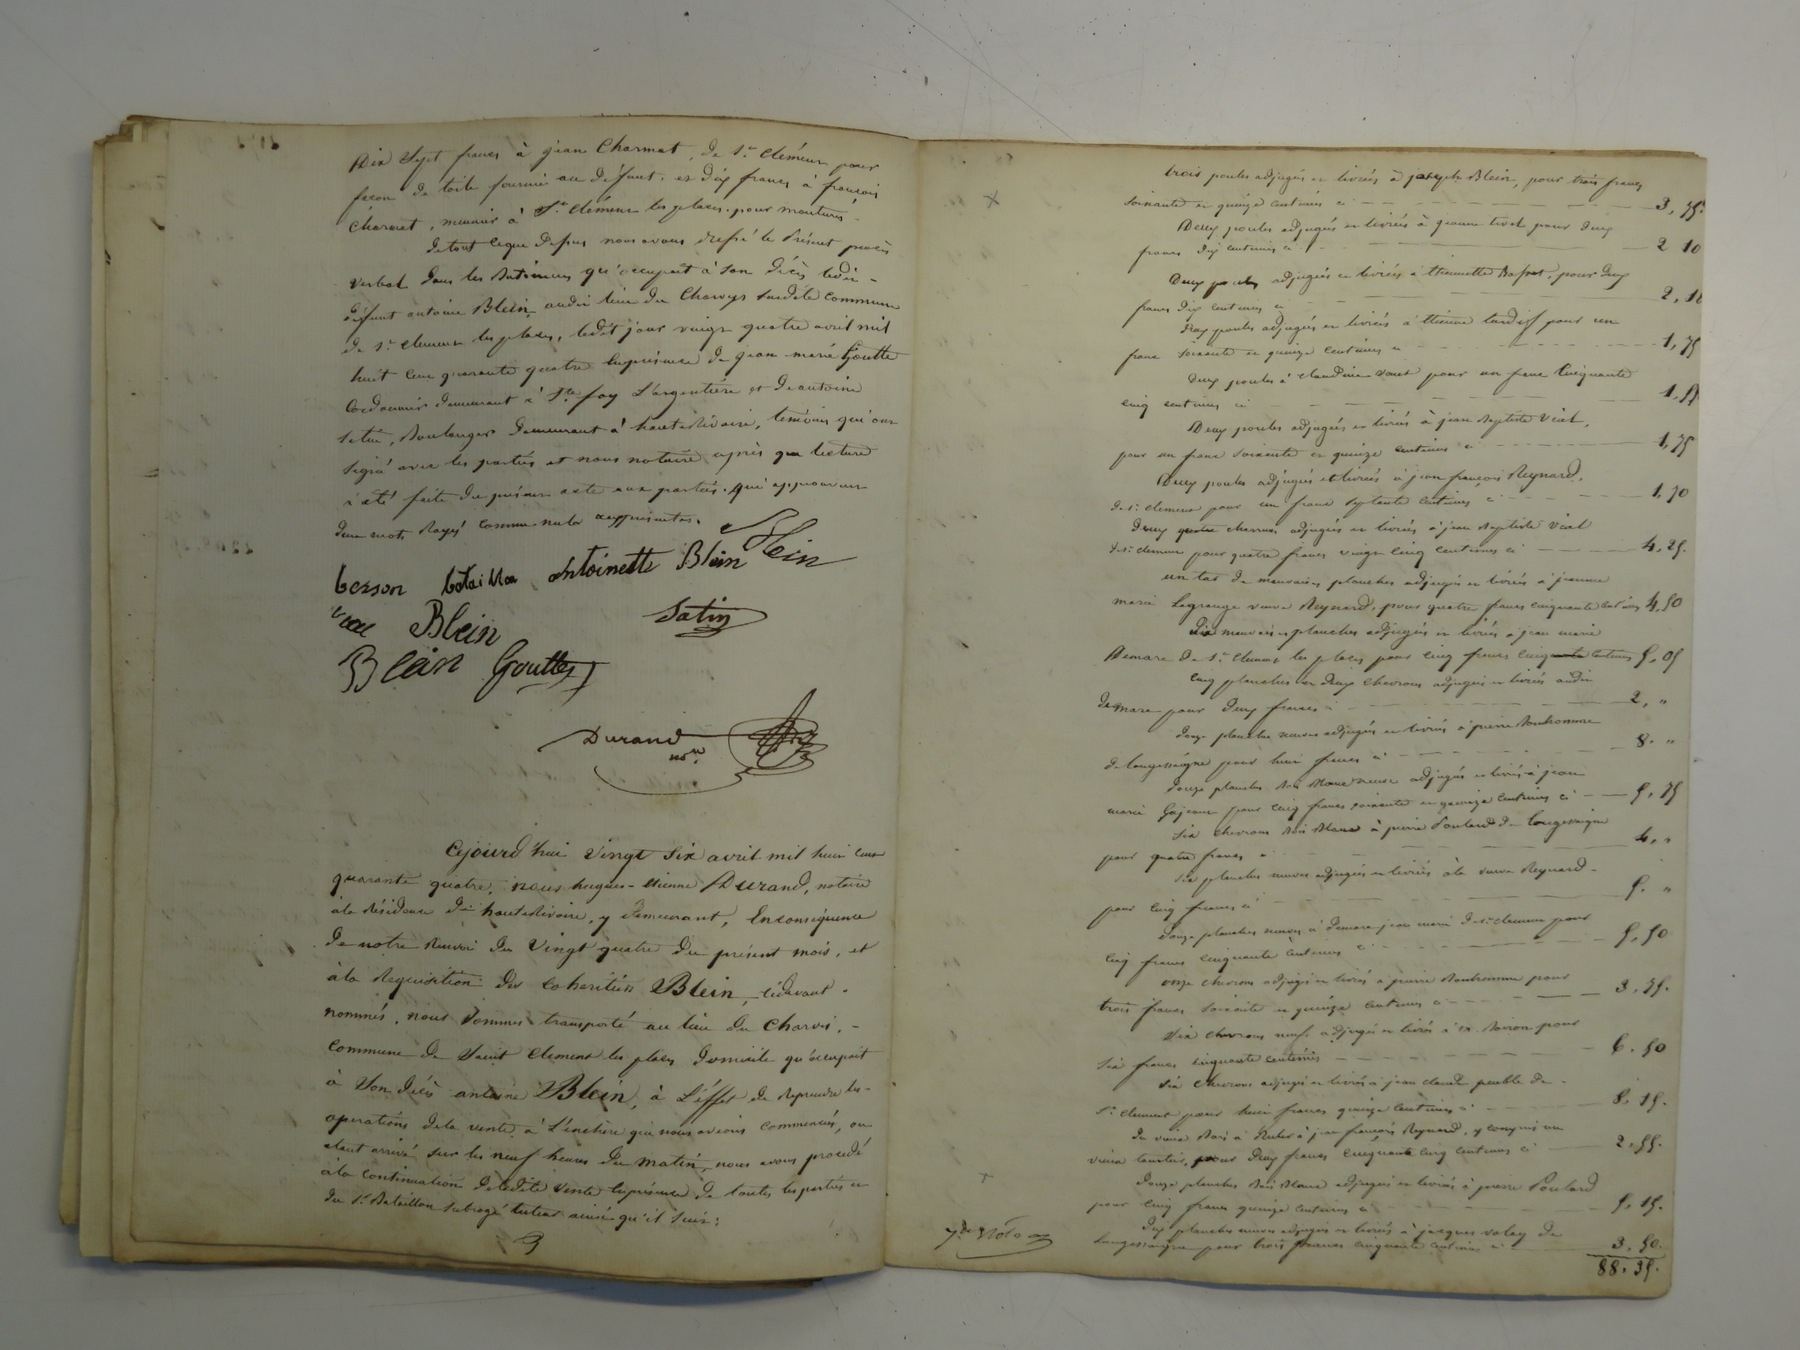 Dix Sept francs à jean Charmat, de St. Clément pour
façon de toile fournie au défunt, et dix francs à françois
Charmat, meunier à St. Clément les places, pour moutures.
de tout ce que dessus nous avons dressé le Présent procès
verbal dans les Batimens qu'occupait à son décès ledit
défunt antoine Blein, audit lieu du Charvy susdite commune
de St. Clement les places, ledit jour vingt quatre avril mil
huit cent quarante quatre En présence de jean-marie Goutte
Cordonnier demeurant à Ste. foy L'argentière et de antoine
Satin, Boulanger demeurant à haute Rivoire, témoins qui ont
signé avec les parties et nous notaire après que lecture
a été faite du présent acte aux parties. qui approuvent
deux mots Rayés comme nuls
Blein
berson bataillon antoinette Blein
Blein Satin
Blein Goutte
Durand nore.
Cejourd'hui Vingt Six avril mil huit cent
quarante quatre, nous hugues-etienne Durand, notaire
à la Résidence de haute Rivoire, y demeurant, En conséquence
de notre Renvoi du Vingt quatre du présent mois, et
à la Requisition des Coheritiers Blein, cidevant
nommés, nous Sommes transporté au lieu du Charvi,
commune de Saint Clement les places domicile qu'occupait
à Son décès antoine Blein, à L'éffet de Reprendre les
operations de la vente à L'enchère que nous avions commencés, ou
étant arrivé sur les neuf heures du matin, nous avons procédé
à la continuation de ladite vente En présence de toutes les parties et
du Sr. Bataillon subrogé tuteur ainsi qu'il Suit:
trois poules adjugés et livrés à joseph Blein, pour trois francs
soixante et quinze centimes ci 3, 75.
Deux poules adjugés et livrés à jeanne tivet pour deux
francs dix centimes ci 2 10
Deux poules adjugés et livrés à thiennette Bassat, pour deux
francs dix centimes ci 2, 10
Deux poules adjugés et livrés à thienne tardif pour un
franc soixante et quinze centimes ci 1, 75
Deux poules à Claudine pour un franc Cinquante
cinq centimes ci 1, 55
Deux poules adjugés et livrés à jean Baptiste Vial,
pour un franc soixante et quinze centimes ci 1, 75
Deux poules adjugés et livrés à jean françois Reynard,
de St. Clement pour un franc septante centimes ci 1, 70
deux charrues adjugés et livrés à jean Baptiste Vial
de St. Clement pour quatre francs vingt cinq centimes ci 4, 25.
un tas de mauvaises planches adjugés et livrés à jeanne
marie Lagrange veuve Reynard, pour quatre francs cinquante centimes 4, 50
Six mauvaises planches adjugés et livrés à jean marie
Demare de St. Clement les places pour cinq francs cinq centimes 5, 05
Cinq planches et deux chevrons adjugés et livrés audit
demare pour deux francs ci 2, "
Douze planches neuves adjugés et livrés à pierre Bonhomme
de longessaigne pour huit francs ci 8. "
Douze planches Bois Blanc neuve adjugés et livrés à jean
marie Gojean pour cinq francs soixante et quinze centimes ci 5, 75
Six chevrons Bois Blanc à pierre Poulard de Longessaigne
pour quatre francs ci 4, "
Six planches neuves adjugés et livrés à la veuve Reynard
pour cinq francs ci 5. "
Douze planches neuves à demare jean marie de St. clement pour
cinq francs cinquante centimes ci 5, 50
onze chevrons adjugés et livrés à pierre Bonhomme pour
trois francs soixante et quinze centimes ci 3, 75.
Six chevrons neufs adjugés et livrés à pour
six francs cinquante centimes 6. 50
Six chevrons adjugés et livrés à jean claude peuble de
St. clement pour huit francs quinze centimes ci 8. 15.
du vieux Bois à Bruler à jean françois Reynard, y compris un
vieux pour deux francs cinquante cinq centimes ci 2, 55.
Douze planches Bois Blanc adjugés et livrés à pierre Poulard
pour cinq francs quinze centimes ci 5, 15.
Dix planches neuves adjugés et livrés à jacques valey de
longessaigne pour trois francs cinquante centimes ci 3, 50.
88. 35.